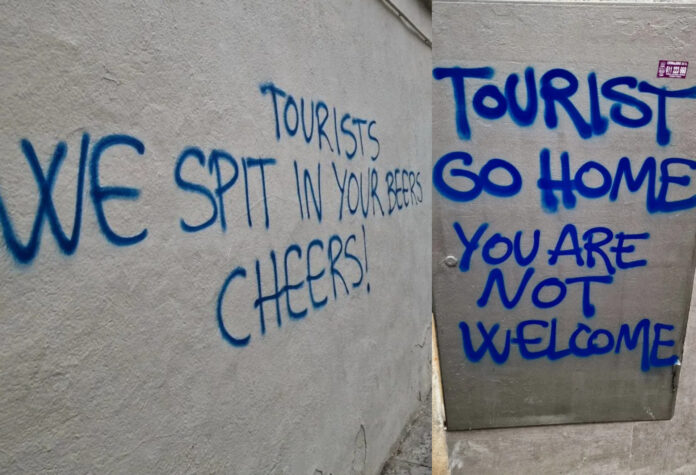 TOURISTS
WE SPIT IN YOUR BEERS
CHEERS!
TOURIST
GO HOME
YOU ARE
NOT
WELCOME